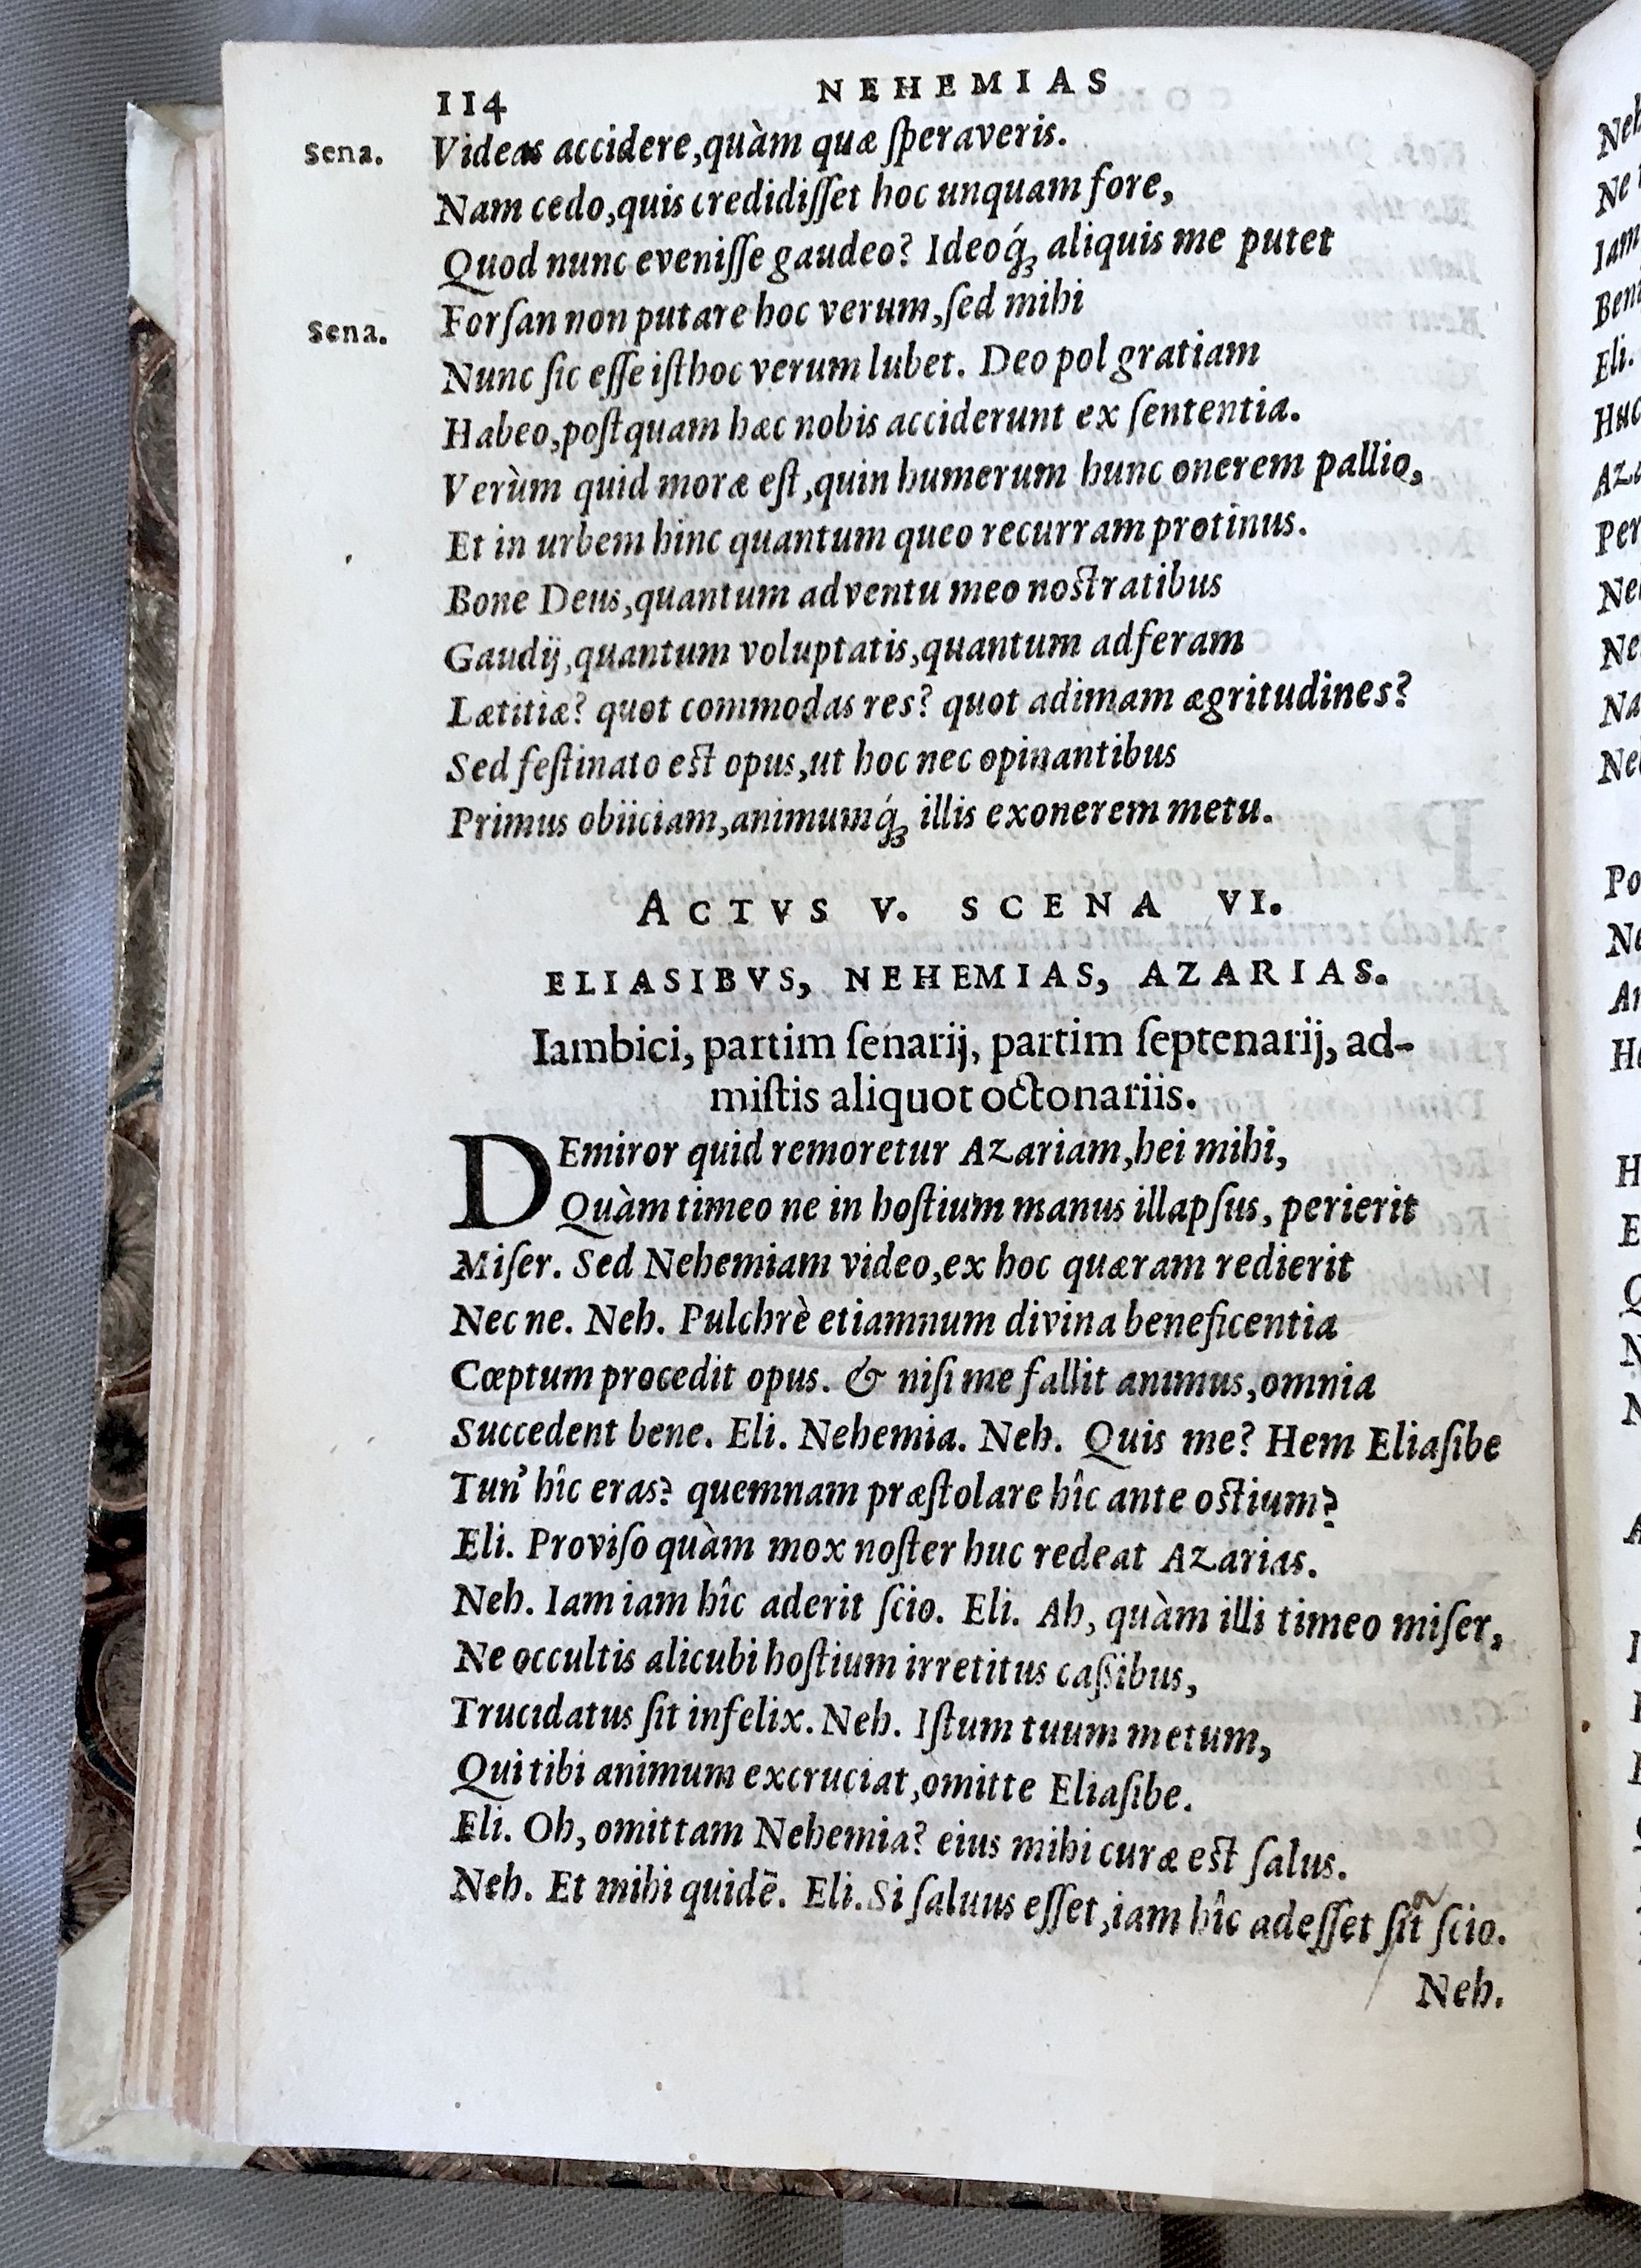 114 NEHEMIAS
Sena. Videas accidere,quàm quæ ſperaveris.
Nam cedo,quis credidiſſet hoc unquam fore,
Quod nunc eveniſſe gaudeo? Ideoq́ꝫ aliquis me putet
Sena. Forſan non putare hoc verum,ſed mihi
Nunc ſic eſſe iſthoc verum lubet. Deo pol gratiam
Habeo,poſtquam hæc nobis acciderunt ex ſententia.
Verùm quid moræ eſt,quin humerum hunc onerem pallio,
Et in urbem hinc quantum queo recurram protinus.
Bone Deus,quantum adventu meo nostratibus
Gaudij,quantum voluptatis,quantum adferam
Lætitiæ? quot commodas res? quot adimam ægritudines?
Sed feſtinato est opus,ut hoc nec opinantibus
Primus obiiciam,animumq́ꝫ illis exonerem metu.
ACTVS V. SCENA VI.
ELIASIBVS, NEHEMIAS, AZARIAS.
Iambici, partim ſenarij, partim ſeptenarij, ad-
miſtis aliquot octonariis.
DEmiror quid remoretur Azariam,hei mihi,
Quàm timeo ne in hoſtium manus illapſus, perierit
Miſer. Sed Nehemiam video,ex hoc quæram redierit
Nec ne. Neh. Pulchrè etiamnum divina beneficentia
Cœptum procedit opus. & niſi me fallit animus,omnia
Succedent bene. Eli. Nehemia. Neh. Quis me? Hem Eliaſibe
Tun' hîc eras? quemnam præſtolare hîc ante ostium?
Eli. Proviſo quàm mox noſter huc redeat Azarias.
Neh. Iam iam hîc aderit ſcio. Eli. Ah, quàm illi timeo miſer,
Ne occultis alicubi hoſtium irretitus caßibus,
Trucidatus ſit infelix. Neh. Iſtum tuum metum,
Qui tibi animum excruciat,omitte Eliaſibe.
Eli. Oh, omittam Nehemia? eius mihi curæ est ſalus.
Neh. Et mihi quidē. Eli. Si ſaluus eſſet,iam hîc adeſſet ſit ſcio.
Neh.